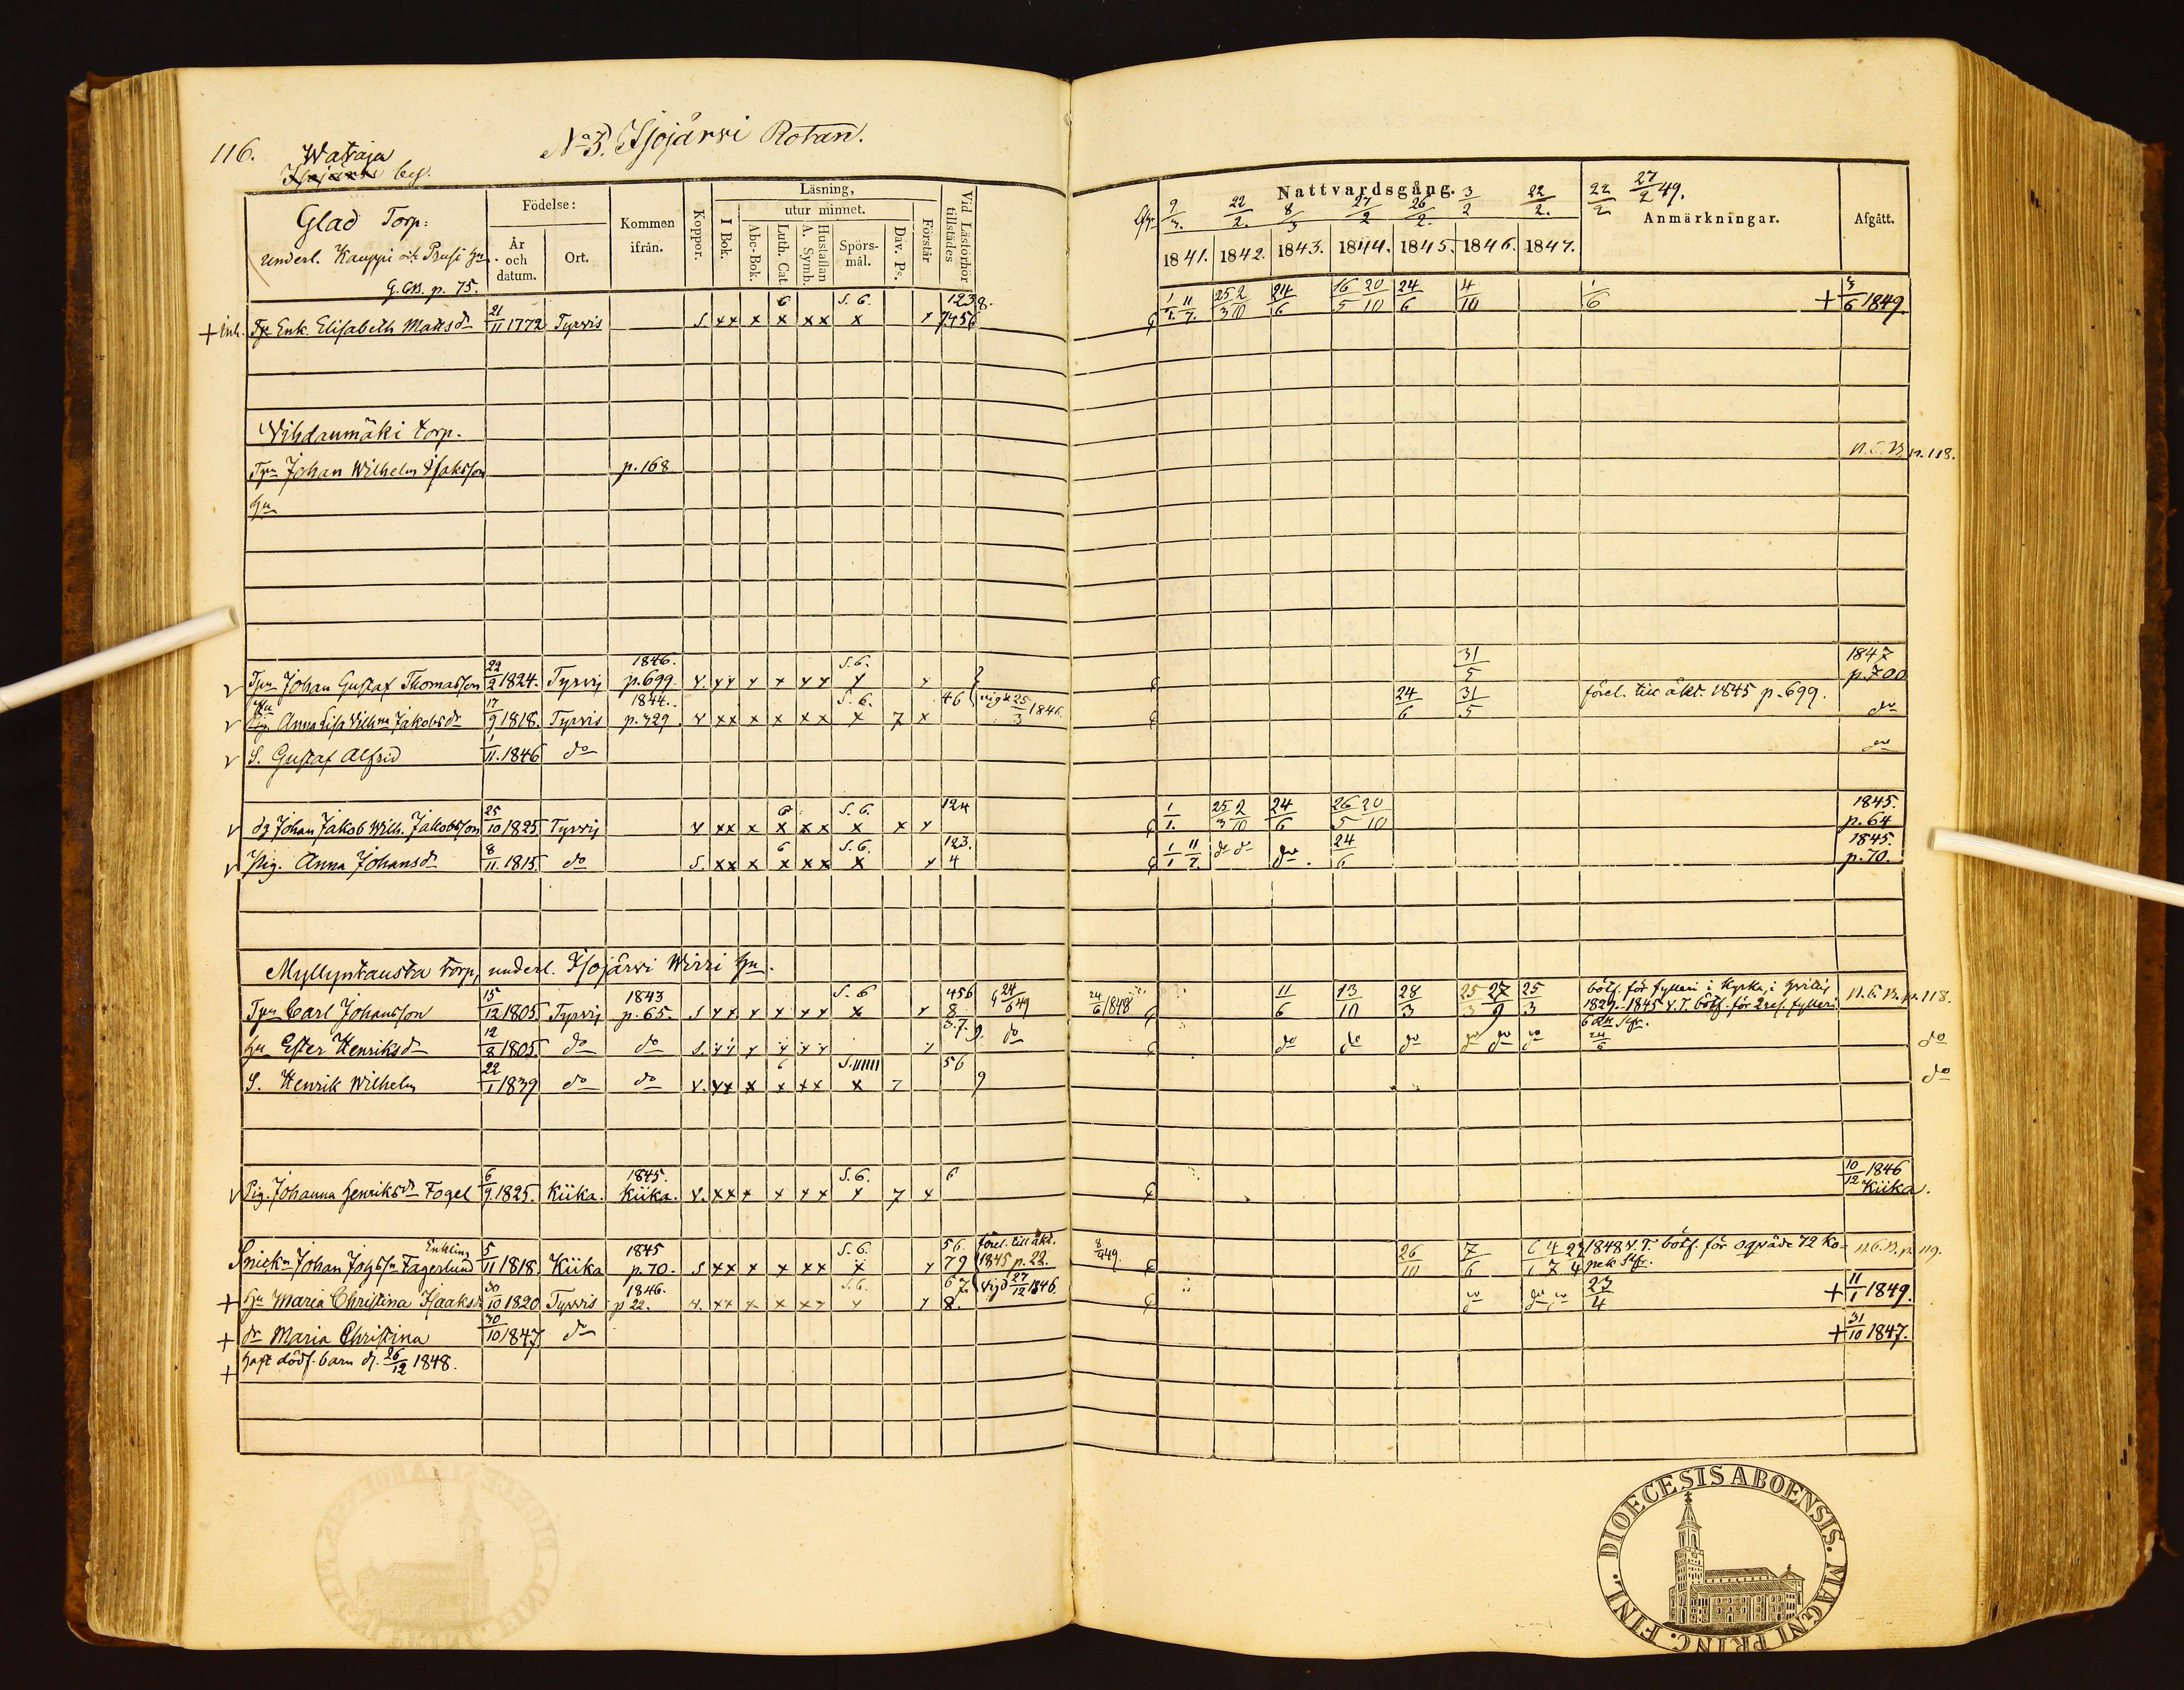 116. Wataja No 3. Isojärvi Rotan.
Isojärvi by.
Glad Torp: Födelse: Kommen ifrån. Koppor. Läsning, Vid Läsförhör tillstädes
underl. Kauppi och Prusi Hn. År och datum. Ort. I Bok. utur minnet. Förstår
G. CB. p. 75. Abc-Bok. Luth. Cat. Hustaflan A. Symb. Spörs-mål. Dav. Ps.
Nattvardsgång. Anmärkningar. Afgått.
9/3. 22/2. 8/3 27/2 26/2. 3/2 22/2. 22/2 27/2 49.
1841. 1842. 1843. 1844. 1845. 1846. 1847.
+ Inh. Tp. Enk. Elisabeth Matts dr 21/11 1772 Tyrvis S. xx x x xx S. 6. x x 1238. 7456 1/1. 11/7. 25/3 2/10 24/6 16/5 20/10 24/6 4/10 1/6 + 3/6 1849.
Vihdanmäki torp.
Tpn Johan Wilhelm Isaksson p. 168 N.C.B. p. 118.
Hu
v Tpn Johan Gustaf Thomasson 22/2 1824. Tyrvis 1846. p. 699. v. xx x x xx S. 6. x x 31/5 1847 p. 700
v Hu Pig. Anna Lisa Vilhma Jakobs dr 17/9 1818. Tyrvis 1844. p. 329. v xx x x xx S. 6. x 7 x 46 vigde 25/3 1846. 24/6 31/5 förel. till äkt. 1845 p. 699. do
v S. Gustaf Alfrid 1/11. 1846 do do
v Dg Johan Jakob Wilh. Jakobsson 25/10 1825 Tyrvis v xx x x 6 xx S. 6. x x x 124 1/1. 25/3 2/10 24/6 26/5 20/10 1845. p. 64
v Pig. Anna Johans dr 8/11. 1815. do S. xx x x 6 xx S. 6. x x 123. 4 1/1 11/7. do do do. 24/6 1845. p. 70.
Myllyntausta torp, underl. Isojärvi Wirri Hn.
Tpn Carl Johansson 15/12 1805 Tyrvis 1843 p. 65. S xx x x xx S. 6 x x 456 8. 24/6 49 24/6 1848 11/6 13/10 28/3 25/3 27/9 25/3 bötf. för fylleri i Kyrka, i
1829. 1845 V.T. bötf. för 2resf. fylleri N.C.B. p. 118.
Hu Ester Henriks dr 12/8 1805. do do S. xx x x xx x 3. 7. 9. do do do do do do do 24/6 do
S. Henrik Wilhelm 22/1 1839 do do v. xx x x xx S. IIIIII x 7 56 9 do
v Pig. Johanna Henriks dr Fogel 6/9. 1825. Kiika. 1845. Kiika. v. xx x x xx S. 6. x 7 x 6 10/12 1846 Kiika.
Enkling
Snickn Johan Johs sn Fagerlund 5/11 1818. Kiika 1845 p. 70. S xx x x xx S. 6. x x 56. 79 förel. till äkt. 1845 p. 22. 8/4 49. 26/10 7/6 1848 V.T. bötf. för oqväde 72 Ko-
pek Slfr. N.C.B. p. 119.
+ Hu Maria Christina Isaaks dr 30/10 1820 Tyrvis 1846. p 22. v. xx x x xx S. 6. x x 67 8. vigd 27/12 1846 do do do 23/4 + 11/1 1849.
+ dr Maria Christina 30/10 1847 do + 31/10 1847.
+ haft dödf. barn d. 26/12 1848.
DIOECESIS ABOENSIS. MAGNI PRINC. FINL.